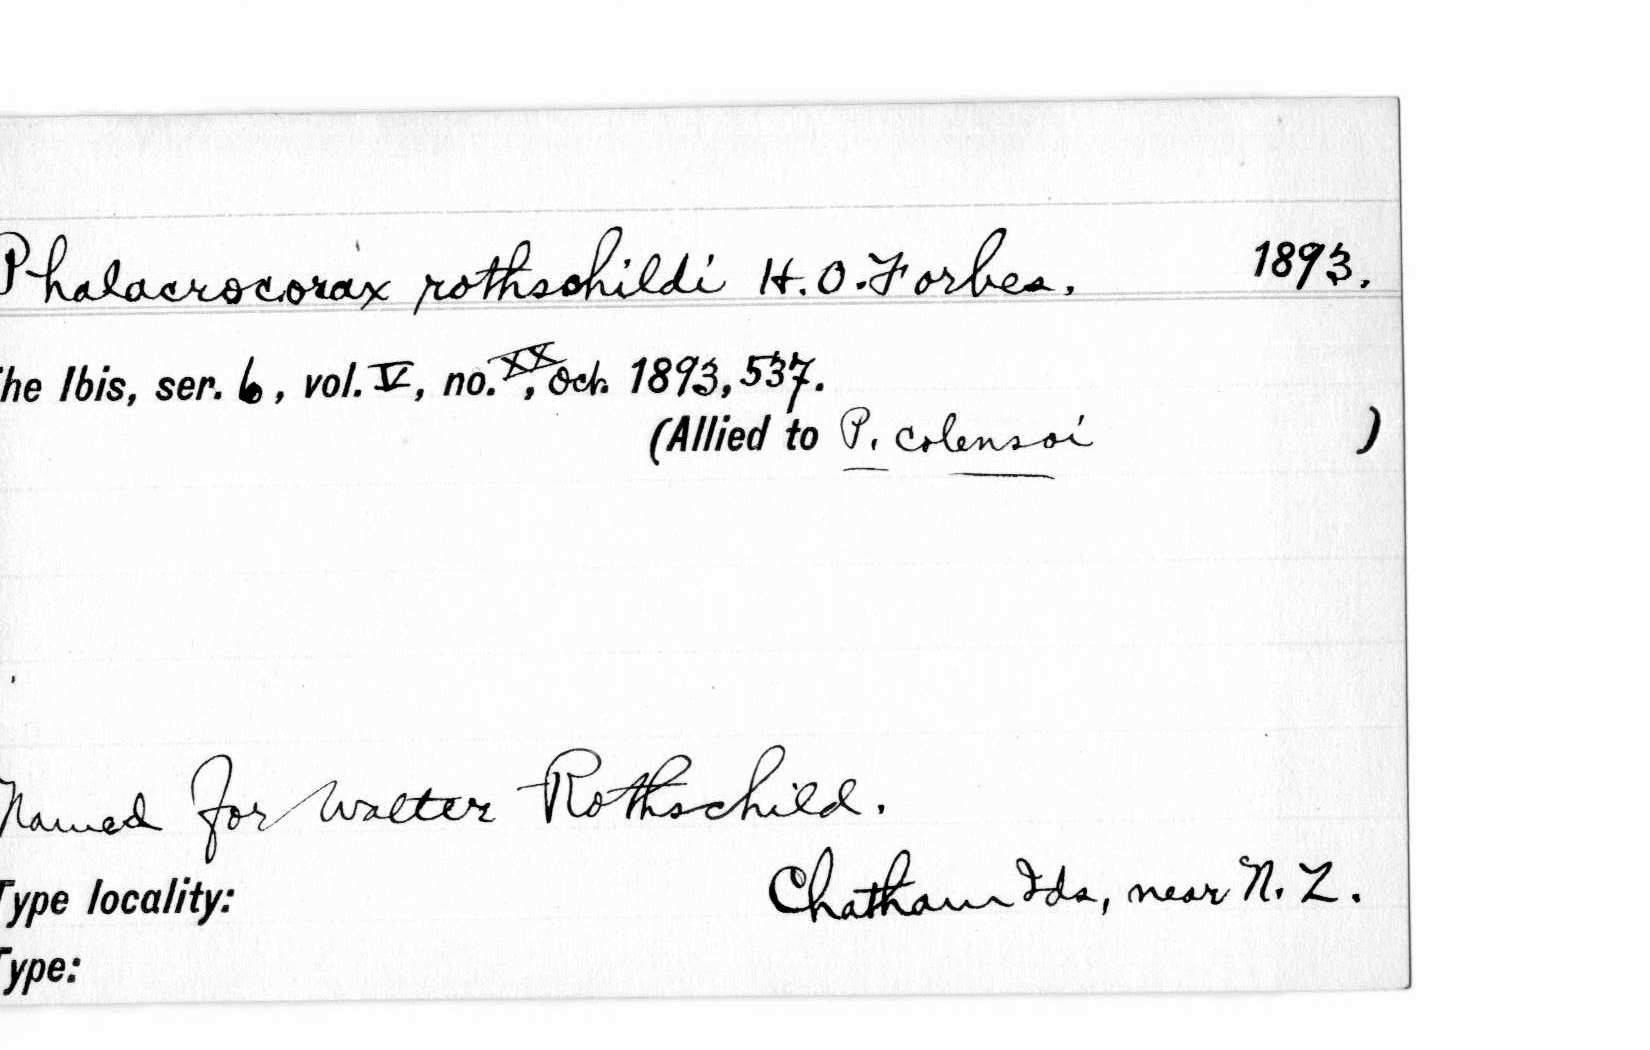 Phalacrocorax rothschildi H.O. Forbes. 1893.
The Ibis, ser. 6, vol. V, no. XX, Oct. 1893, 537.
(Allied to P. colensoi )
Named for Walter Rothschild.
Type locality: Chatham Ids, near N. Z.
Type: